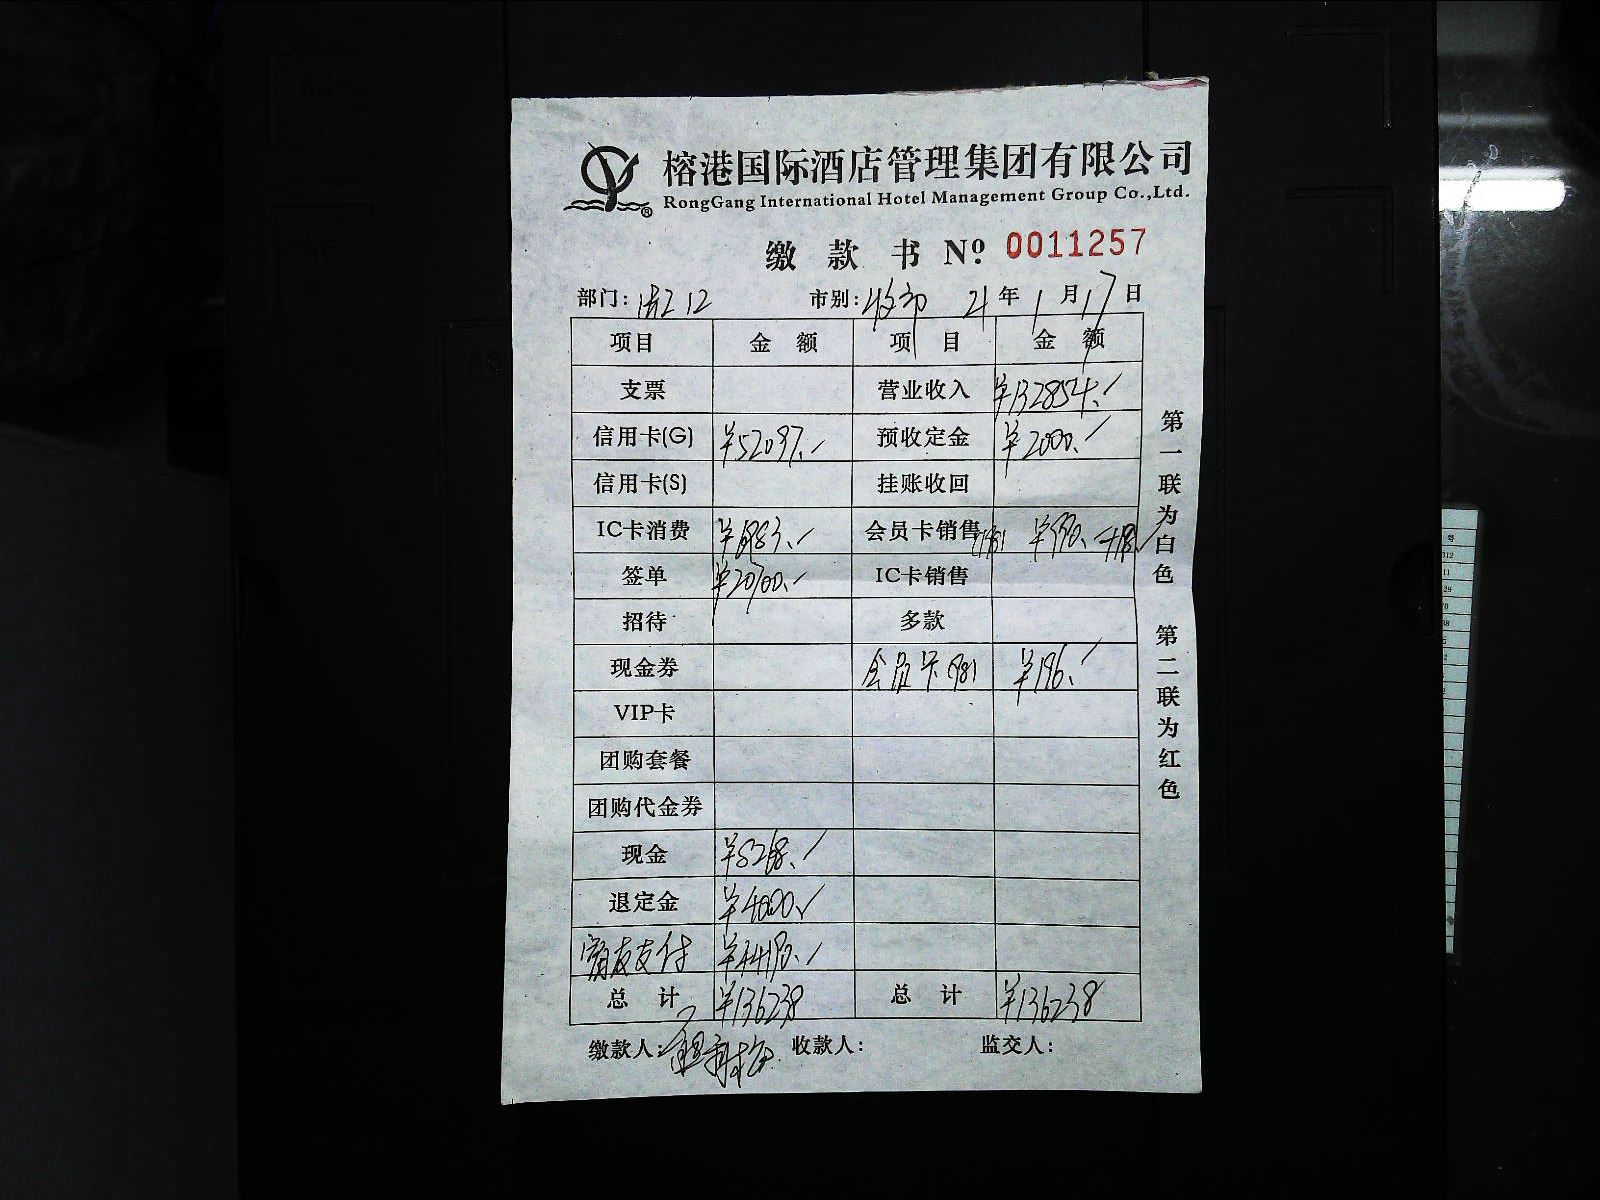 榕港国际酒店管理集团有限公司
RongGang International Hotel Management Group Co.,Ltd.
缴 款 书 Nº: 0011257
部门: 市别: 收市 21 年 1 月 17 日
项目 金 额 项 目 金 额
支票 营业收入 ¥132854.
信用卡(G) ¥52097. 预收定金 ¥2000.
信用卡(S) 挂账收回
IC卡消费 会员卡销售
签单 ¥20700. IC卡销售
招待 多款
现金券 会员卡 ¥196.
VIP卡
团购套餐
团购代金券
现金 ¥5268.
退定金 ¥4000.
支付
总 计 ¥136238 总 计 ¥136238
缴款人: 收款人: 监交人:
第一联为白色 第二联为红色